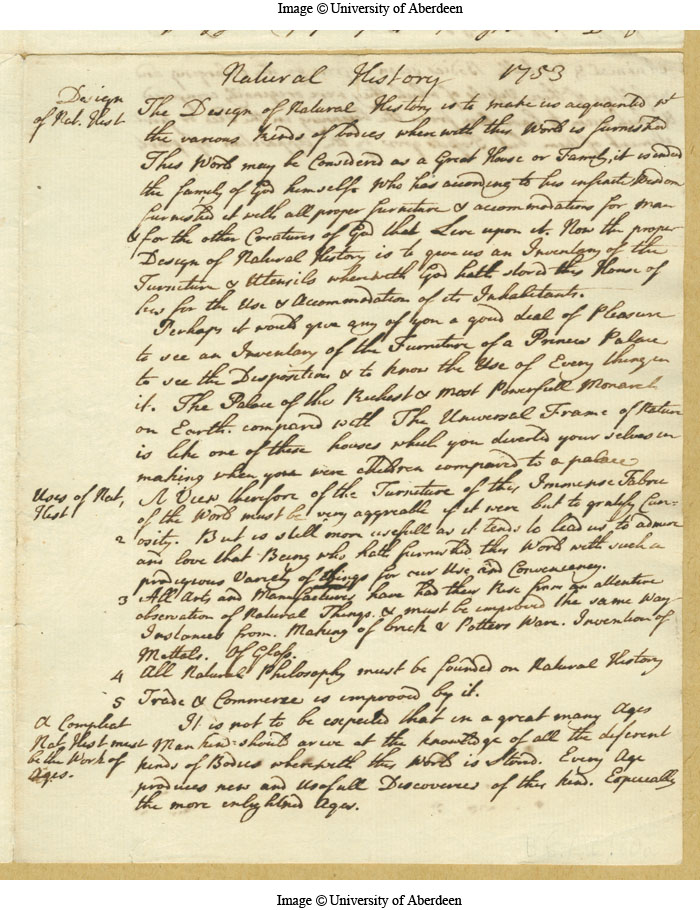 Image © University of Aberdeen
Natural History 1753
Design
of Nat. Hist
The Design of Natural History is to make us acquainted wt
the various kinds of bodies wherewith this World is furnished
This World may be Considered as a Great House or Family, it is indeed
the family of God himself. Who has according to his infinite Wisdom
furnished it with all proper furniture & accommodations for man
& for the other Creatures of God that Live upon it. Now the proper
Design of Natural History is to give us an Inventory of the
Furniture & Utensils wherewith God hath stored this House of
his for the Use & Accommodation of its Inhabitants.
Perhaps it would give any of you a good deal of Pleasure
to see an Inventory of the Furniture of a Princes Palace
to see the Disposition & to know the Use of Every thing in
it. The Palace of the Richest & most Powerfull Monarch
on Earth. compared with The Universal Frame of Nature
is like one of these houses which you diverted your selves in
making when you were children compared to a palace
Uses of Nat,
Hist
A View therefore of the Furniture of this Immense Fabric
of the World must be very aggreable if it were but to gratify Curi-
2 osity. But is still more usefull as it tends to lead us to admire
and love that Being who hath furnished this World with such a
prodigious Variety of things for our Use and Conveniency.
3 All Arts and Manufactures have had their Rise from an attentive
observation of Natural Things. & must be improved the same way
Instances from. Making of brick & Potters Ware. Invention of
Mettals. Of Glass.
4 All Natural Philosophy must be founded on Natural History
5 Trade & Commerce is improved by it.
A Compleat
Nat. Hist must
be the Work of
Ages.
It is not to be expected that in a great many Ages
Mankind should arrive at the knowledge of all the different
kinds of Bodies wherewith this World is Stored. Every Age
produces new and Usefull Discoveries of this kind. Especially
the more enlightned Ages.
Image © University of Aberdeen